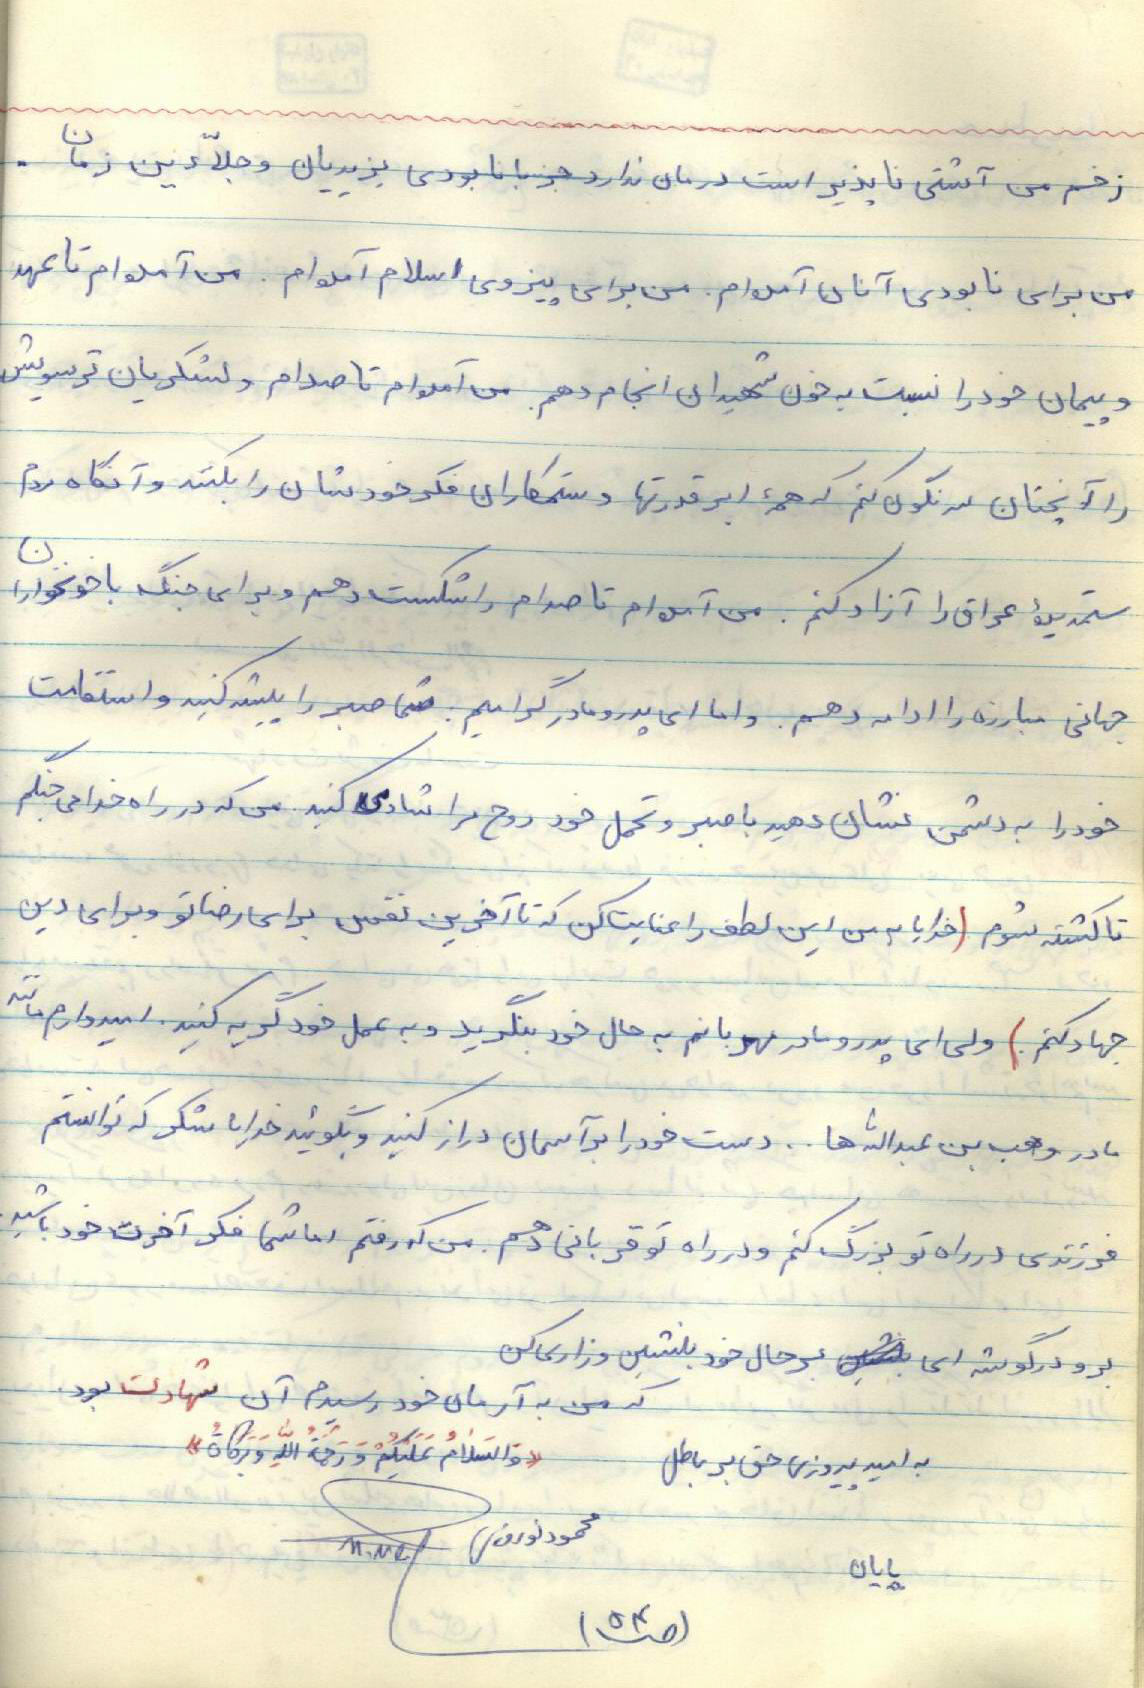 زخم من آشتی ناپذیر است درمان ندارد جز با نابودی یزیدیان و جلاّدین زمان .
من برای نابودی آنان آمده‌ام . من برای پیروزی اسلام آمده‌ام . من آمده‌ام تا عهد
و پیمان خود را نسبت به خون شهیدان انجام دهم . من آمده‌ام تا صدام و لشکریان ترسویش
را آنچنان سرنگون کنم که همهٔ ابرقدرتها و ستمکاران فکر خودشان را بکنند و آنگاه مردم
ستمدیدهٔ عراق را آزاد کنم . من آمده‌ام تا صدام را شکست دهم و برای جنگ با خونخواران
جهانی مبارزه را ادامه دهم . و اما ای پدر و مادر گرامیم : شما صبر را پیشه کنید و استقامت
خود را به دشمن نشان دهید با صبر و تحمل خود روح مرا شاد کنید . من که در راه خدا می جنگم
تا کشته شوم (خدایا به من این لطف را عنایت کن که تا آخرین نفس برای رضا تو و برای دین
جهاد کنم .) ولی ای پدر و مادر مهربانم به حال خود بنگرید و به عمل خود گریه کنید . امیدوارم مانند
مادر وهب بن عبدالله ها . . دست خود را بر آسمان دراز کنید و بگوئید خدایا شکر که توانستم
فرزندی در راه تو بزرگ کنم و در راه تو قربانی دهم . من که رفتم اما شما فکر آخرت خود باشید .
برو در گوشه ای بر حال خود بنشین و زاری کن
که من به آرمان خود رسیدم آن شهادت بود .
به امید پیروزی حق بر باطل
«وَالسَّلامُ عَلَیکُمْ وَ رَحْمَةُ اللهِ وَ بَرَکاتُهُ»
محمود نوروزی
پایان
(ص ۵۴)